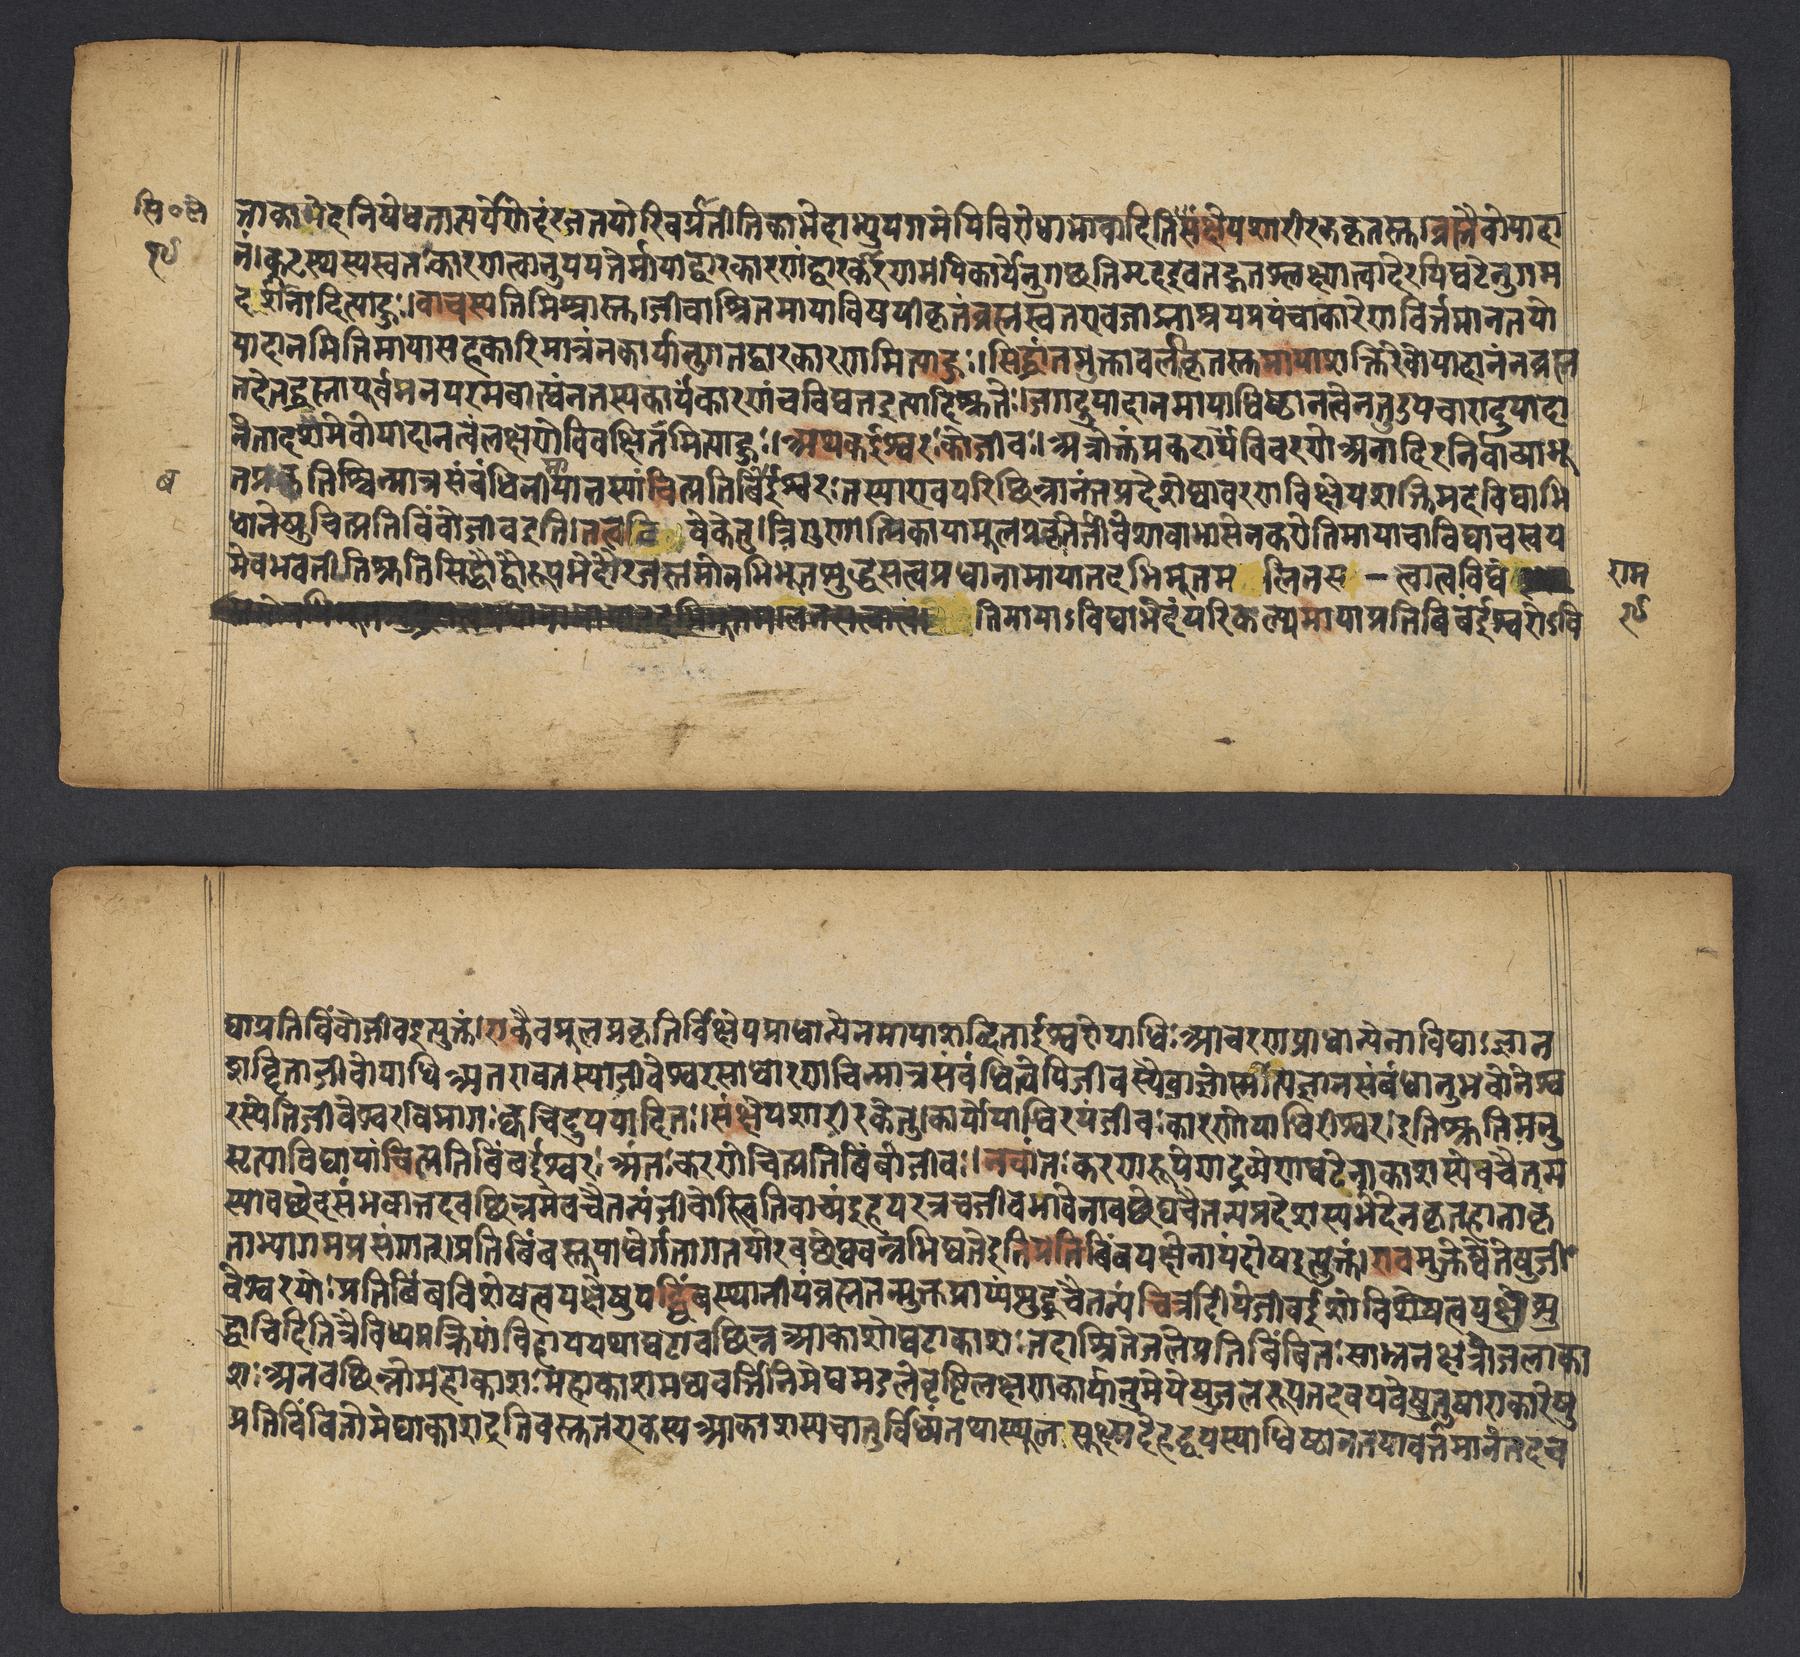 सि॰ले
१५
नाकामेदेनिषेधतात्पर्येणोद्दंरजतयोरिवप्रतीतिकाभेदाभ्युपगमेपिविरोधाभावादितिसंक्षेपशारीरककृतस्तुब्रह्मैवोपादा
नं।कूटस्थस्यस्वतःकारणत्वानुपपत्तेर्मायाद्वारकारणंद्वारकारणमपिकार्येनुगच्छतिमृदइवतद्गतश्लक्ष्णत्वादेरपिघटेनुगम
दर्शनादित्याहुः।वाचस्पतिमिश्रास्तु।जीवाश्रितमायाविषयीकृतंब्रह्मस्वतएवजाड्याश्रयप्रपंचाकारेणविवर्त्तमानतयो
पादानमितिमायासहकारिमात्रंनकार्यानुगतद्वारकारणमित्याहुः।।सिद्धांतमुक्तावलीकृतस्तुमायाशक्तिरेवोपादानंनब्रह्म
तदेतद्ब्रह्मापूर्वमनपरमबाह्यंनतस्यकार्यंकारणंचविद्यतइत्यादिश्रुतेः।जगदुपादानमायाधिष्ठानत्वेनतुउपचारादुपादा
नंतादृशमेवोपादानत्वंलक्षणेविवक्षितमित्याहुः।।अथकईश्वरःकोजीवः।अत्रोक्तंप्रकटार्थविवरणेअनादिरनिर्वाच्याभू
ब
तप्रकृतिश्चिन्मात्रसंबंधिनीमायातस्यांचित्प्रतिबिंबईश्वरःतस्याएवपरिच्छिन्नानंतप्रदेशेष्वावरणविक्षेपशक्तिमदविद्याभि
धानेषुचित्प्रतिबिंबोजीवइति।तत्वविवेकेतु।त्रिगुणात्मिकायामूलप्रकृतेर्जीवेशावाभासेनकरोतिमायाचाविद्याचस्वय
मेवभवतीतिश्रुतिसिद्धौद्वौरूपभेदौरजस्तमोनभिभूतशुद्धसत्वप्रधानामायातदभिभूतमलिनस-त्वात्वविद्ये
तिमायाऽविद्याभेदंपरिकल्प्यमायाप्रतिबिंबईश्वरोऽवि
राम
१५
द्याप्रतिबिंबोजीवइत्युक्तं।एकैवमूलप्रकृतिर्विक्षेपप्राधान्येनमायाशब्दिताईश्वरोपाधिःआवरणप्राधान्येनाविद्याऽज्ञान
शब्दिताजीवोपाधिःअतएवतस्याजीवेश्वरसाधारणचिन्मात्रसंबंधित्वेपिजीवस्यैवाज्ञोस्मीत्यज्ञानसंबंधानुभवोनेश्व
रस्येतिजीवेश्वरविभागःक्वचिदुपपादितः।।संक्षेपशारीरकेतु।कार्योपाधिरयंजीवःकारणोपाधिरीश्वरःइतिश्रुतिमनु
सृत्याविद्यायांचित्प्रतिबिंबईश्वरःअंतःकरणेचित्प्रतिबिंबोजीवः।नचांतःकरणरूपेणद्रव्येणघटेनाकाशस्येवचैतन्य
स्यावच्छेदसंभवात्तदवच्छिन्नमेवचैतन्यंजीवोस्त्वितिवाच्यंइहपरत्रचजीवभावेनावच्छेद्यचैतन्यप्रदेशस्यभेदेनकृतहानाकृ
ताभ्यागमप्रसंगात्।प्रतिबिंबस्तूपाधेर्गतागतयोरवच्छेद्यवन्नभिद्यतेइतिप्रतिबिंबपक्षेनायंदोषइत्युक्तं।एवमुक्तेष्वेतेषुजी
वेश्वरयोःप्रतिबिंबविशेषत्वपक्षेषुयद्बिंबस्थानीयंब्रह्मतन्मुक्तप्राप्यंशुद्धचैतन्यंचित्रदीपेजीवईशोविशेषत्वपक्षेशु
द्धाचिदितित्रैविध्यप्रक्रियांविहाययथाघटावच्छिन्नआकाशोघटाकाशःतदाश्रितेजलेप्रतिबिंबितःसाभ्रनक्षत्रोजलाका
शःअनवच्छिन्नोमहाकाशःमहाकाशमध्यवर्त्तिनिमेघमंडलेवृष्टिलक्षणकार्यानुमेयेषुजलरूपतदवयवेषुतुषाराकारेषु
प्रतिबिंबितोमेघाकाशइतिवस्तुतएकस्यआकाशस्यचातुर्विध्यंतथास्थूलसूक्ष्मदेहद्वयस्याधिष्ठानतयावर्त्तमानंतदव